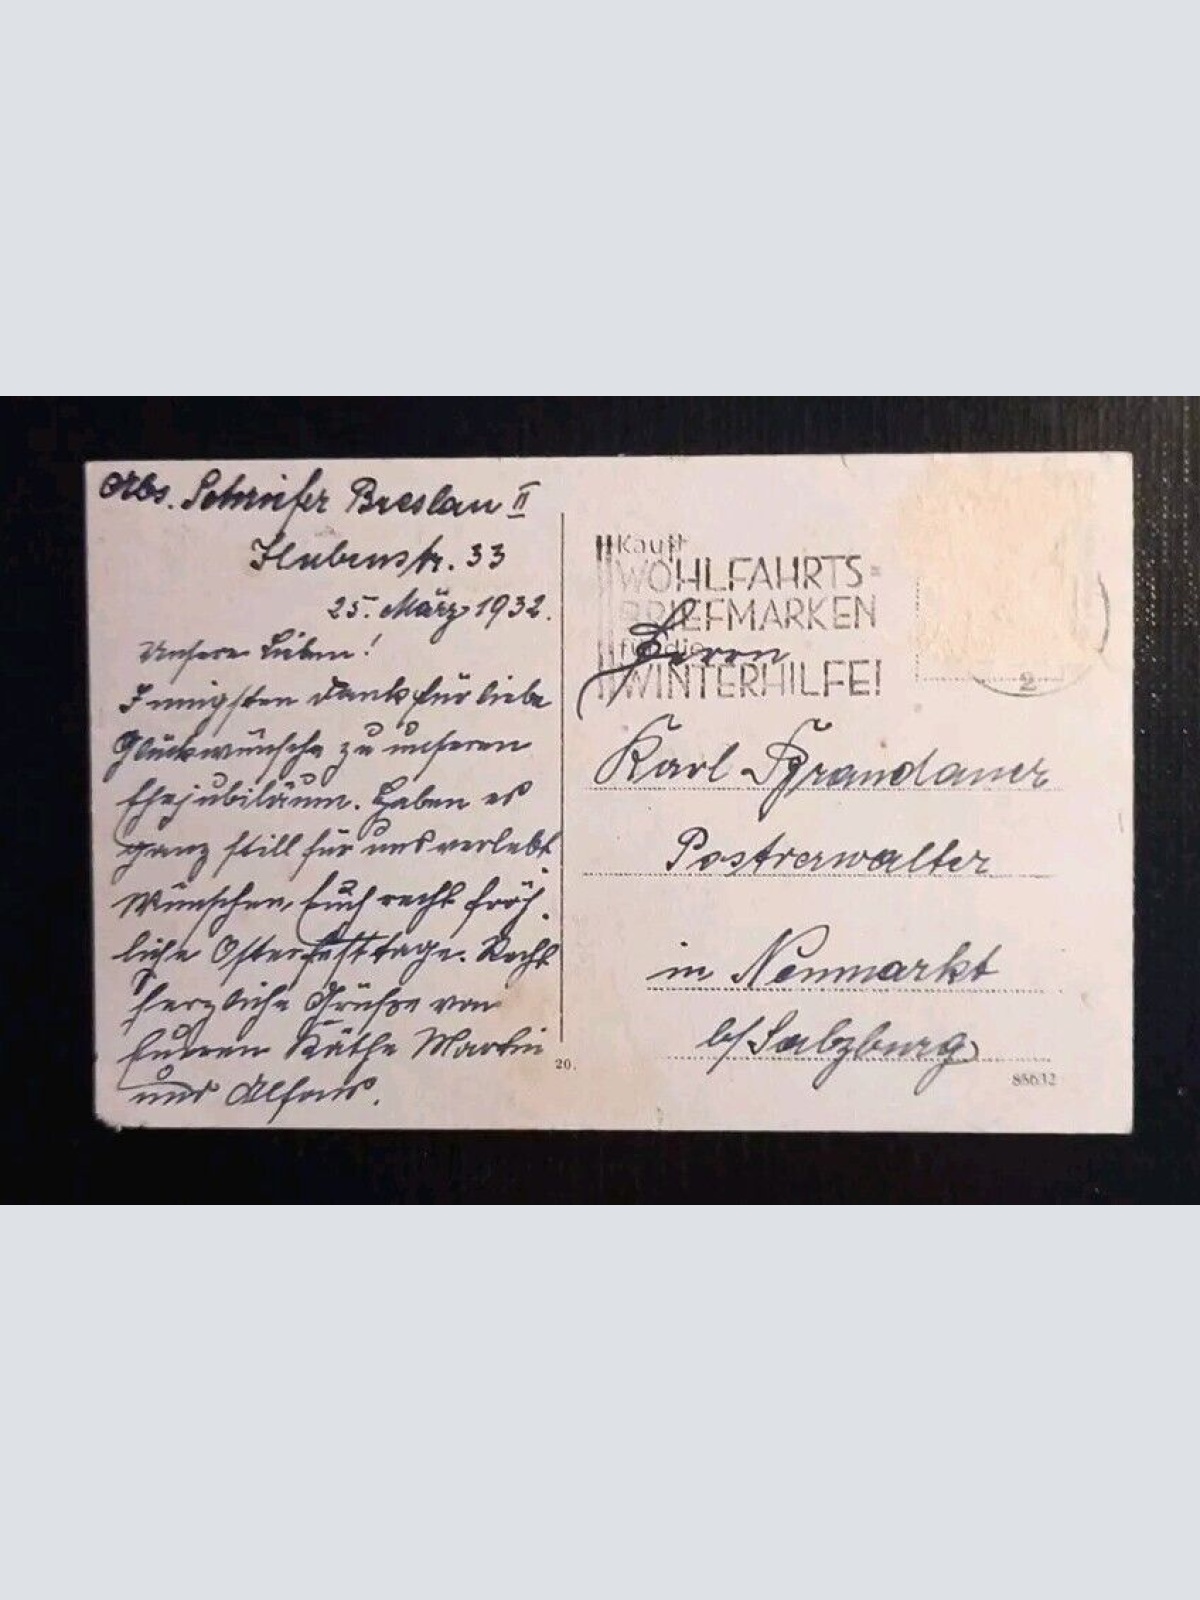 Abs. Schriefer Breslau II
Hubenstr. 33
25. März 1932.
Unsere Lieben!
Innigsten Dank für liebe
Glückwünsche zu unserem
Ehejubiläum. Haben es
ganz still für uns verlebt
Wünschen Euch recht fröh
liche Osterfesttage. Recht
herzliche Grüße von
Euren Käthe Martin
und Alfons.
20.
Kauft
WOHLFAHRTS-
BRIEFMARKEN
für die
WINTERHILFE!
2
Herrn
Karl Grandauer
Postverwalter
in Neumarkt
b/Salzburg
88632